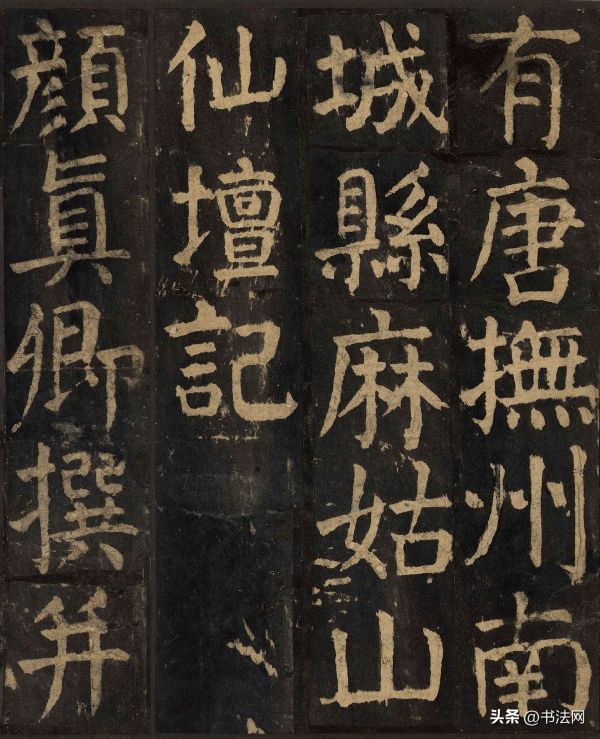 有唐撫州南
城縣麻姑山
仙壇記
顏眞卿撰并
头条 @书法网